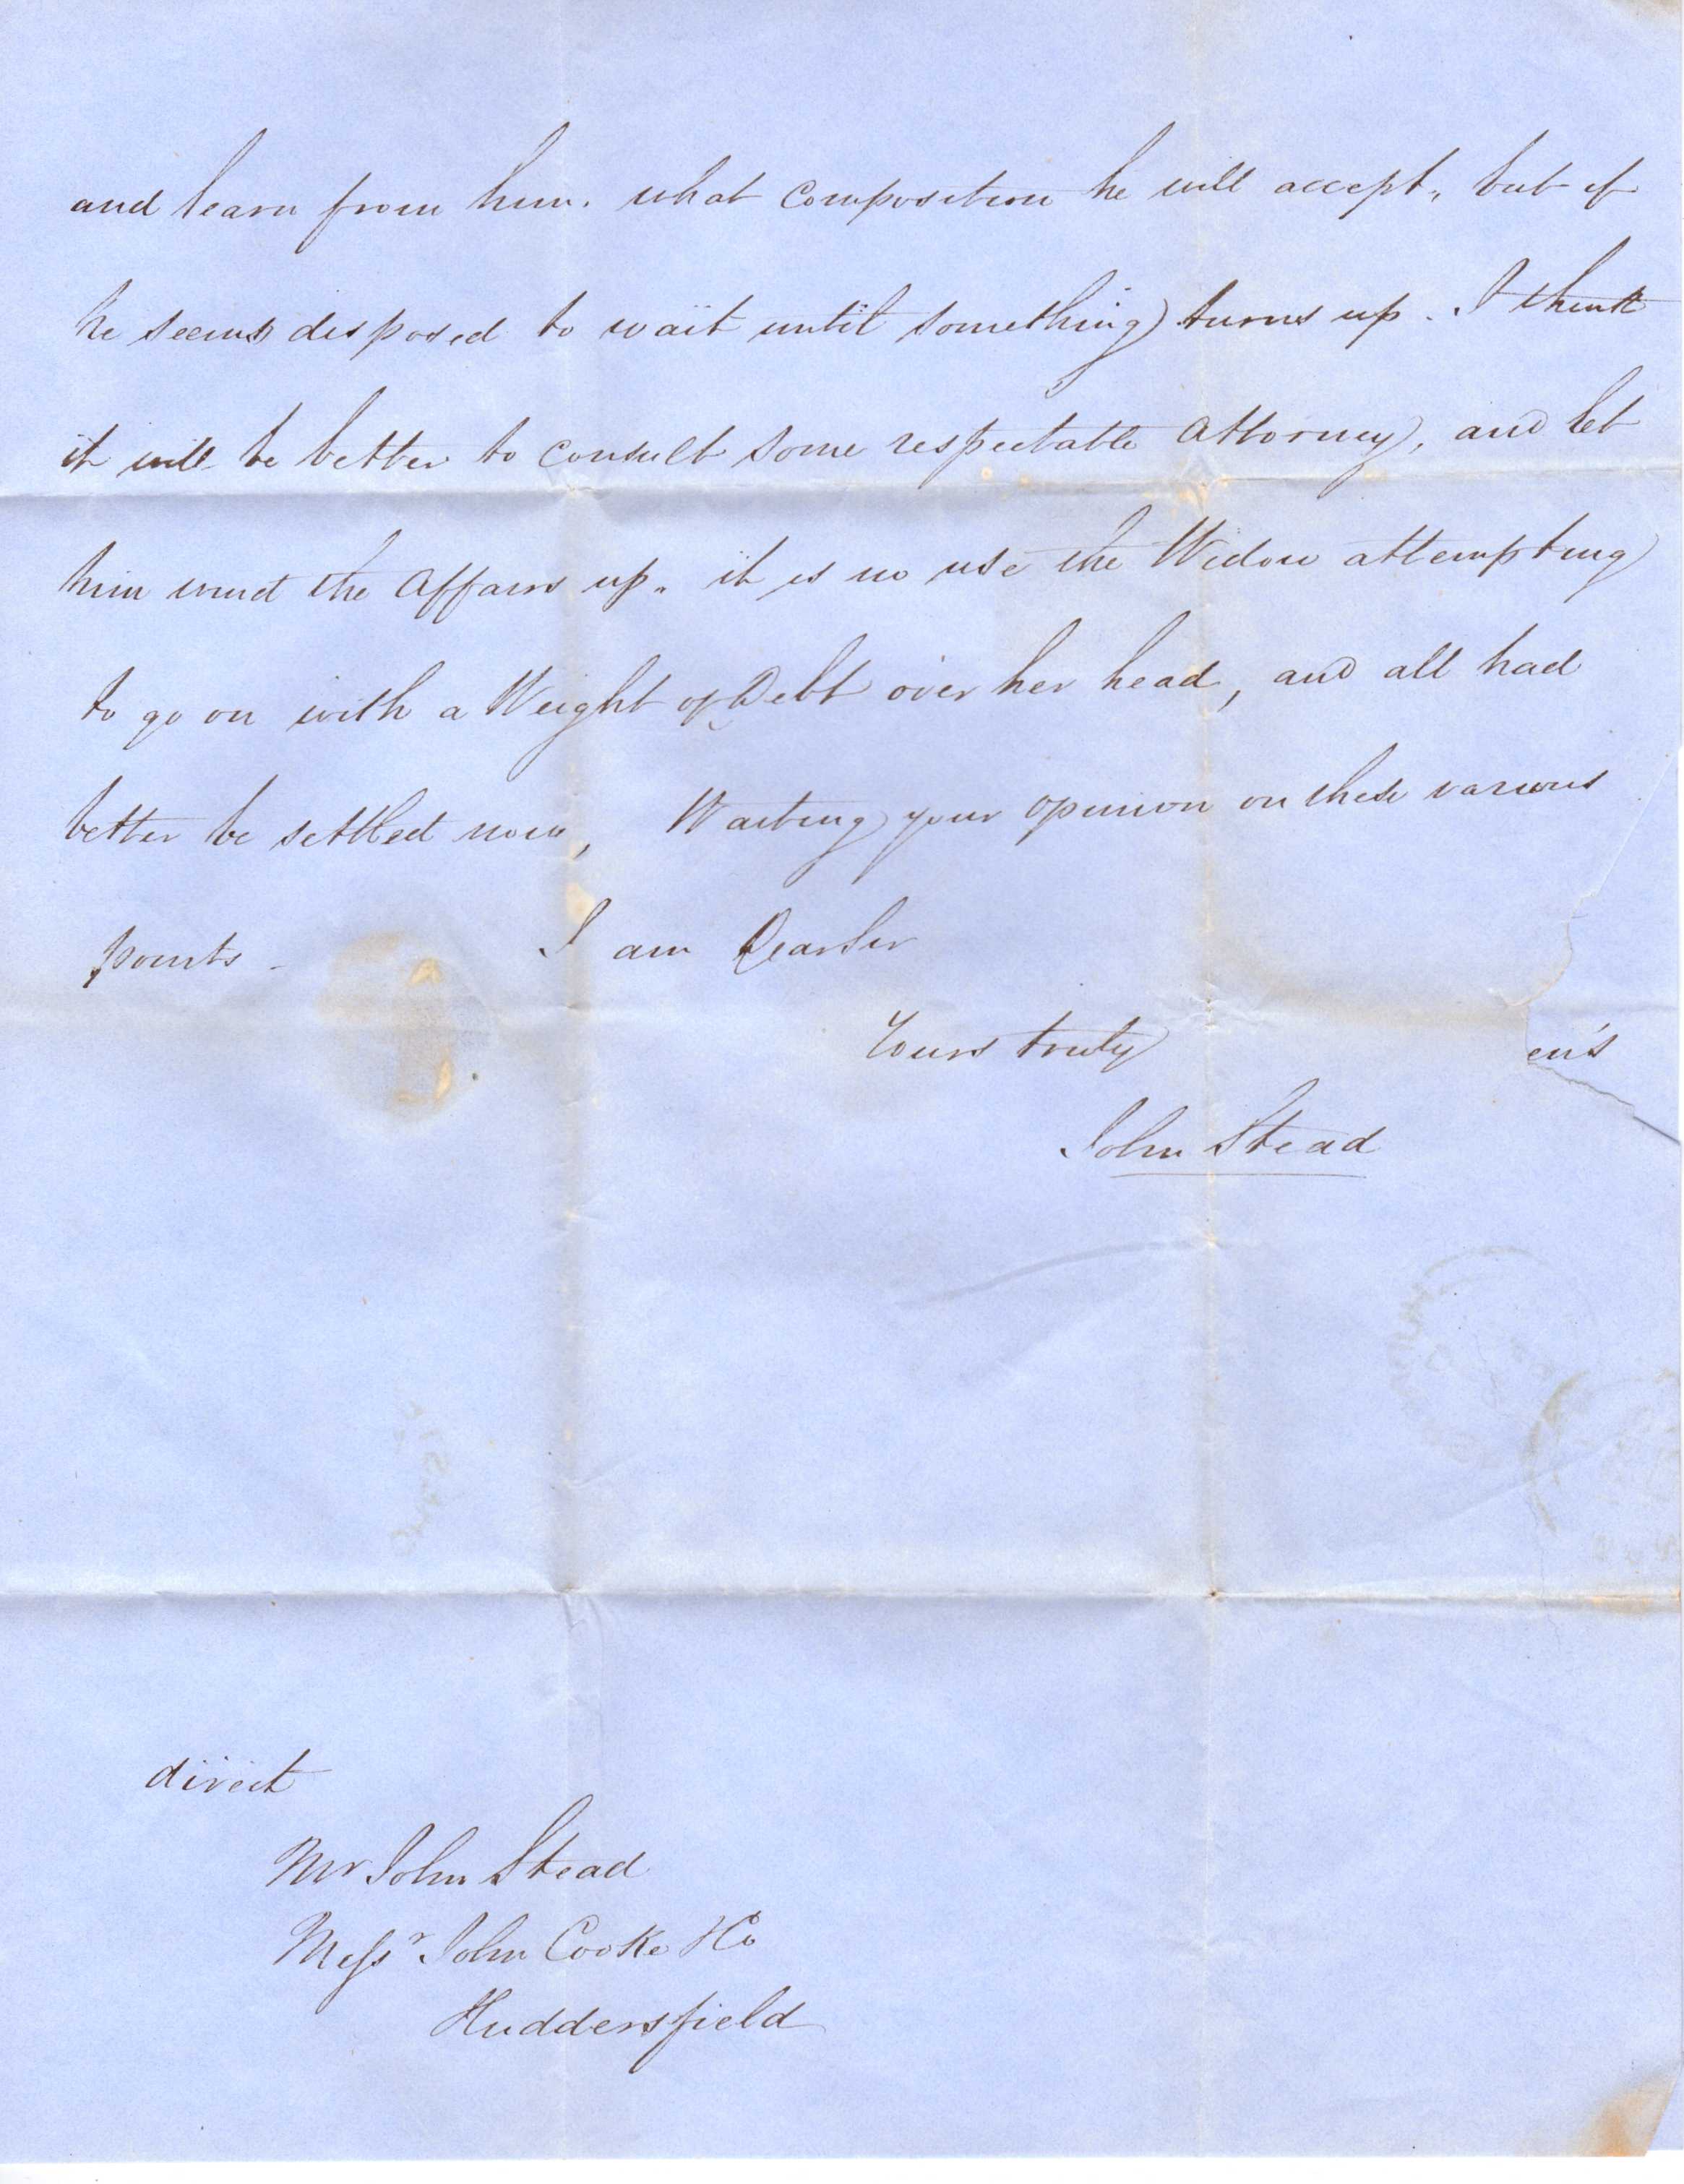 and learn from him. what Composition he will accept, but if
he seems disposed to wait until something turns up. I think
it will be better to consult some respectable Attorney, and let
him wind the Affairs up. it is no use the Widow attempting
to go on with a Weight of Debt over her head, and all had
better be settled now, Waiting your opinion on these various
points - I am Dear Sir
Yours truly
en's
John Stead
direct
Mr John Stead
Messrs John Cooke & Co
Huddersfield